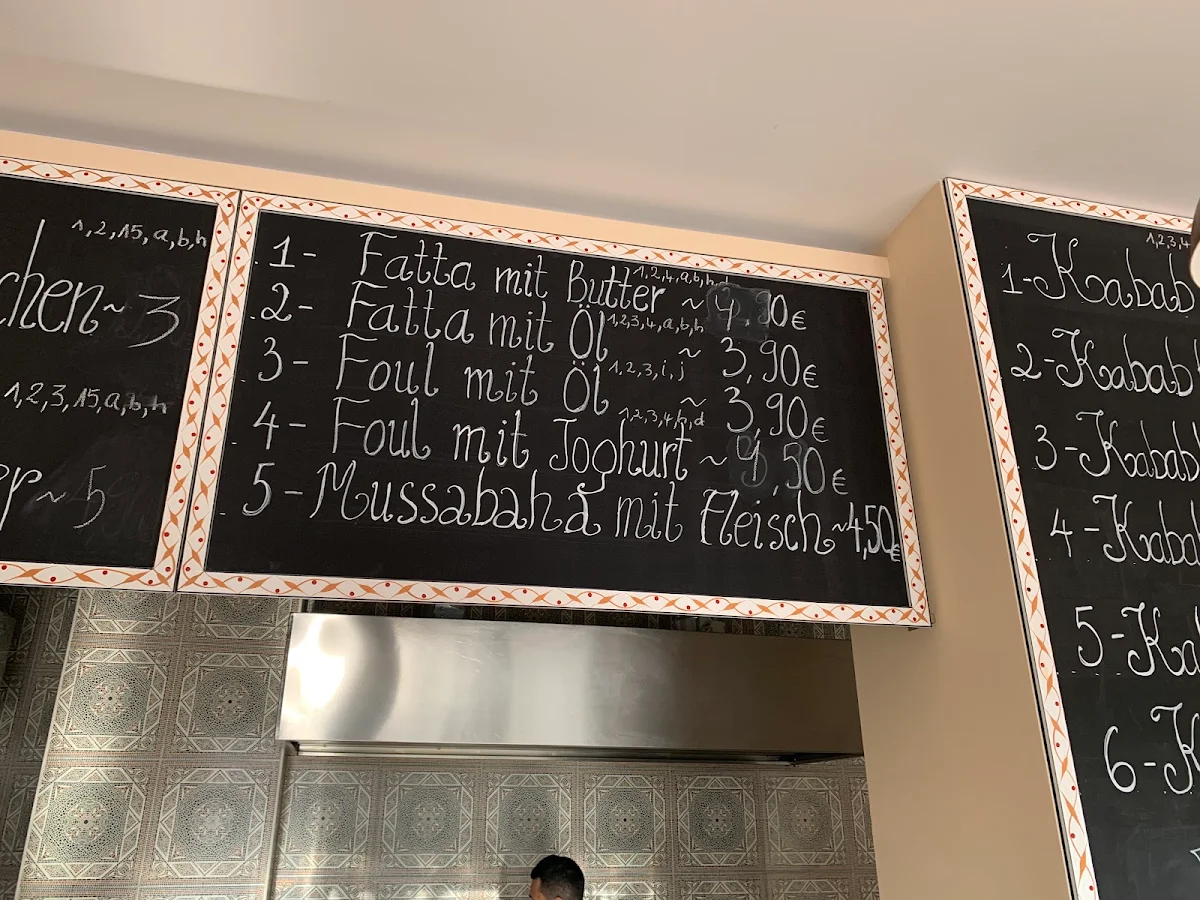 1,2,15,a,b,h
chen~3
1,2,3,15,a,b,h
er~5
1- Fatta mit Butter 1,2,4,a,b,h ~ 4,90€
2- Fatta mit Öl 1,2,3,4,a,b,h ~ 3,90€
3- Foul mit Öl 1,2,3,i,j ~ 3,90€
4- Foul mit Joghurt 1,2,3,4,h,d ~ 4,50€
5- Mussabaha mit Fleisch ~4,50€
1,2,3,4
1-Kabab
2-Kabab
3-Kabab
4-Kaba
5-Ka
6-K